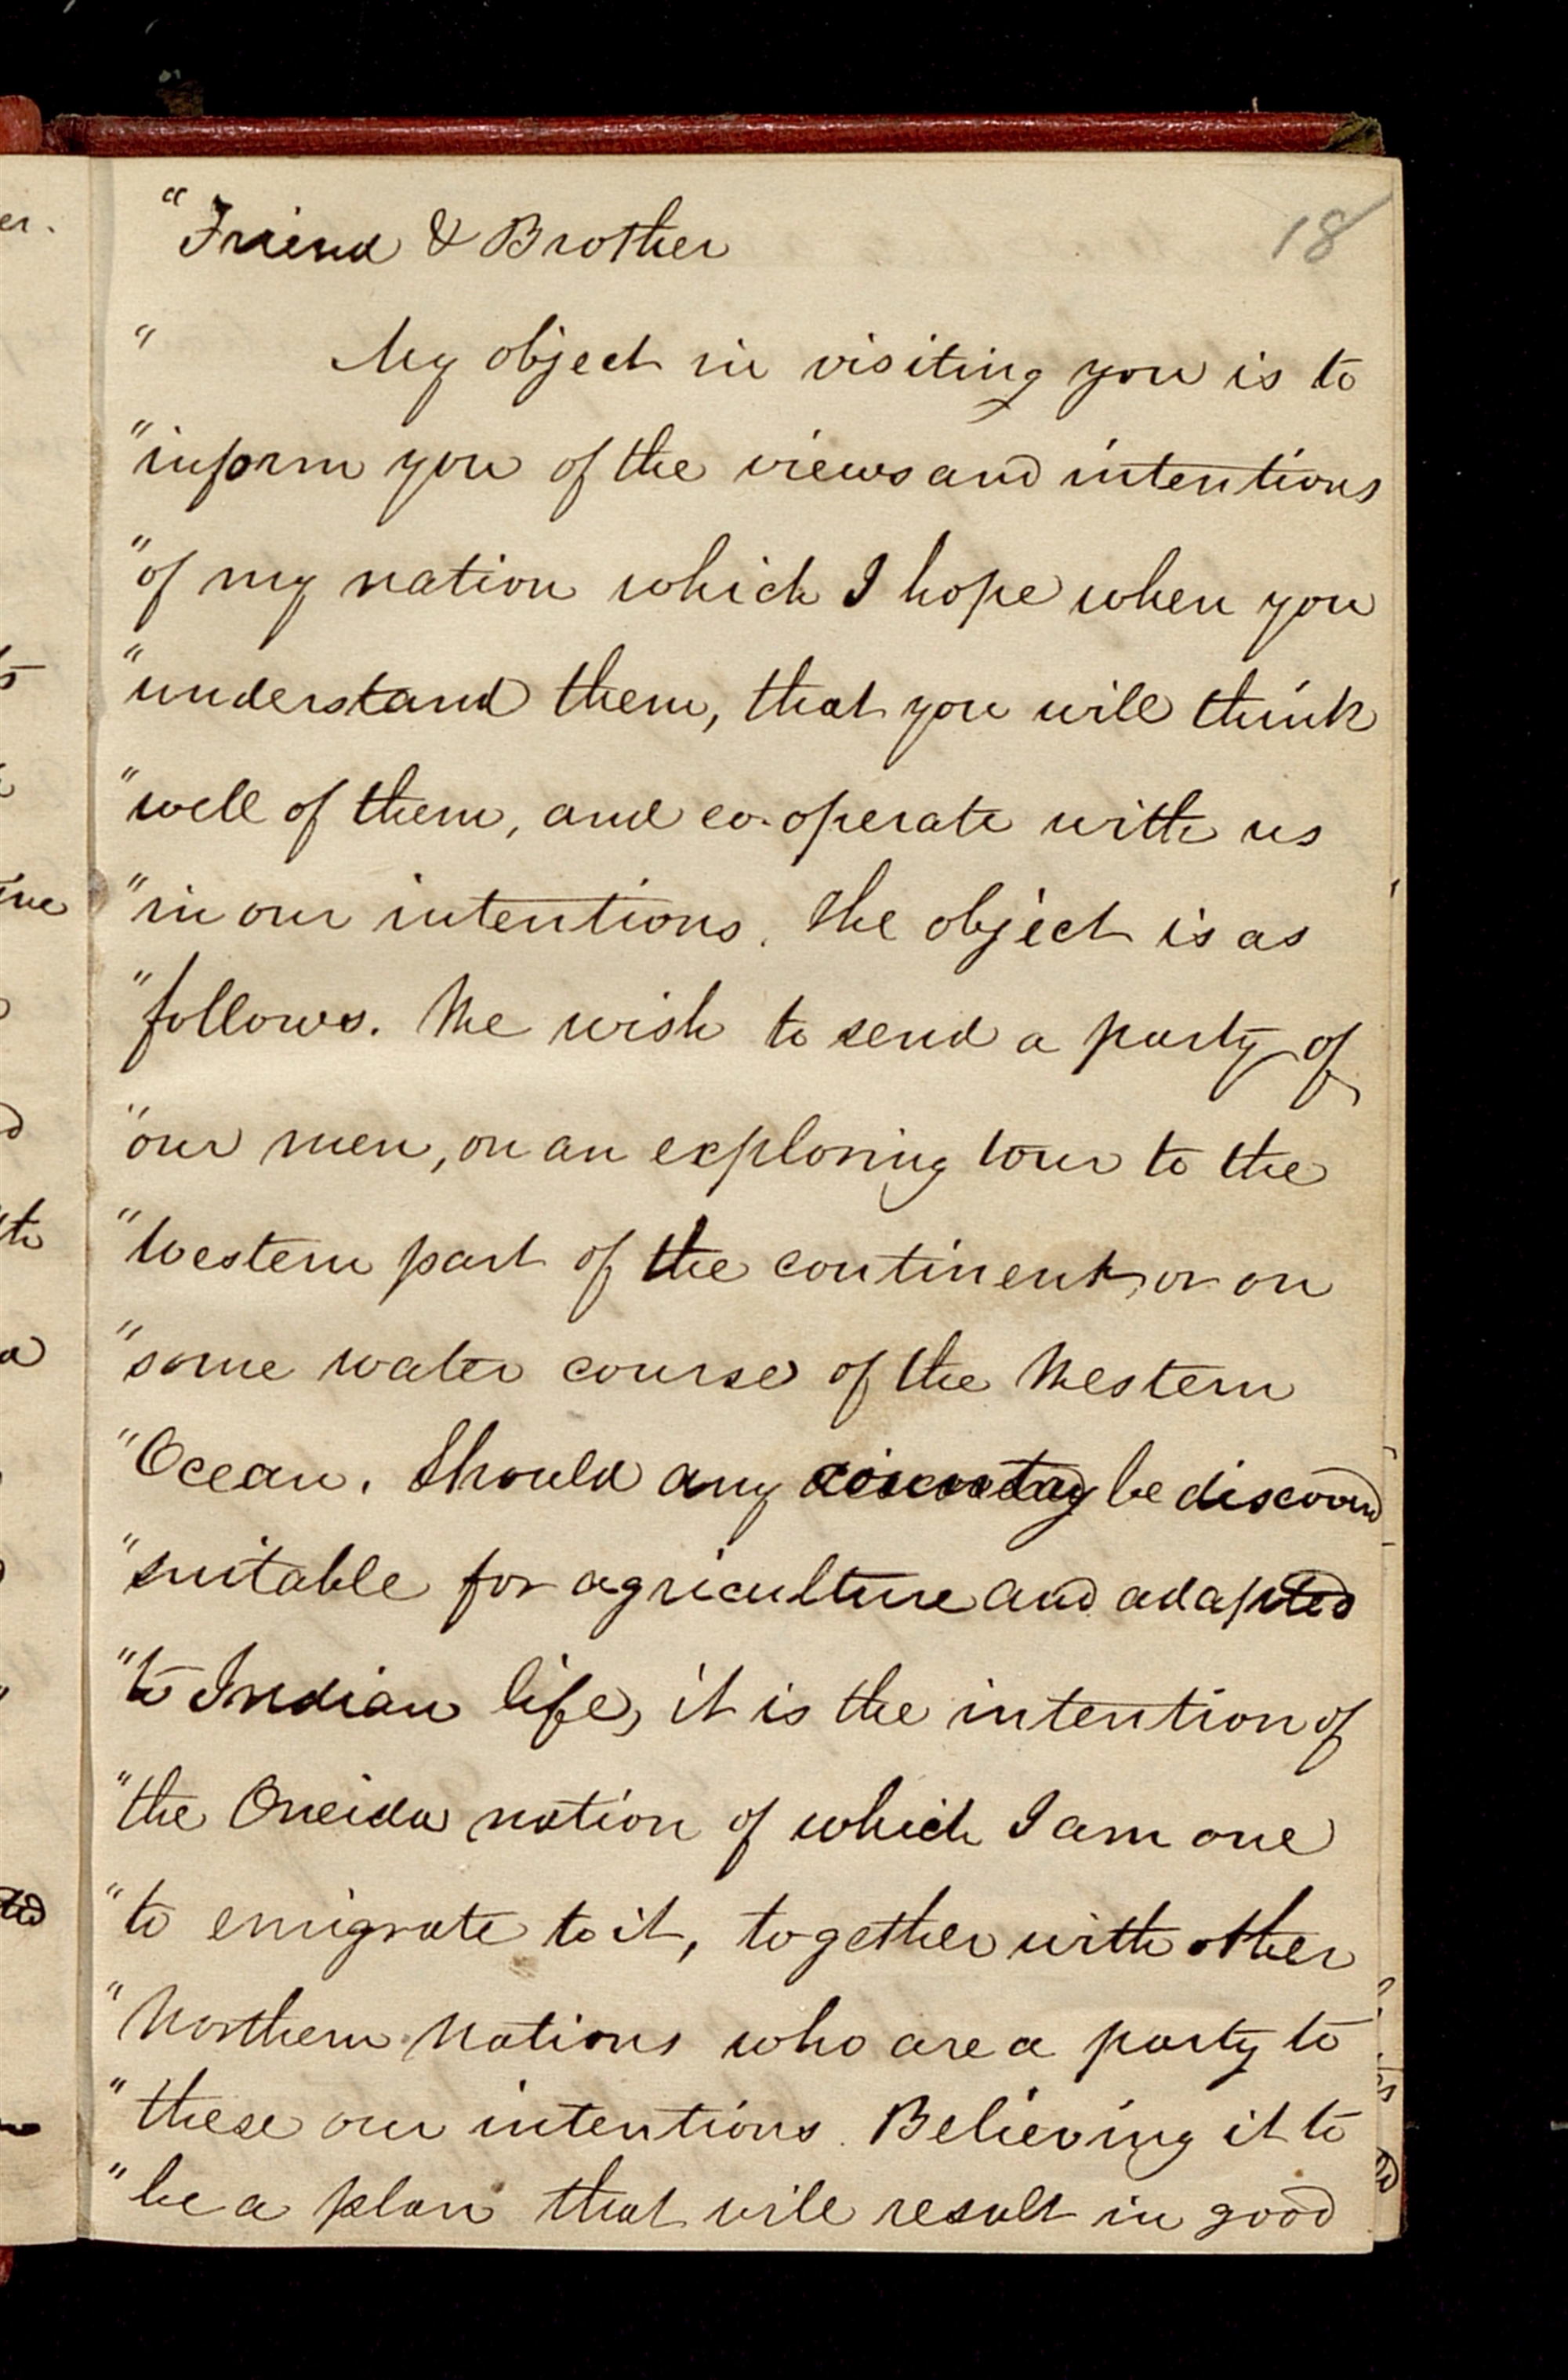 "Friend & Brother
18
" My object in visiting you is to
"inform you of the views and intentions
"of my nation which I hope when you
"understand them, that you will think
"well of them, and co-operate with us
"in our intentions. The object is as
"follows. We wish to send a party of
"our men, on an exploring tour to the
"Western part of the continent, or on
"some water course of the Western
"Ocean. Should any country be discoverd
"suitable for agriculture and adapted
"to Indian life, it is the intention of
"the Oneida nation of which I am one
"to emigrate to it, together with other
"Northern Nations who are a party to
"these our intentions. Believing it to
"be a plan that will result in good